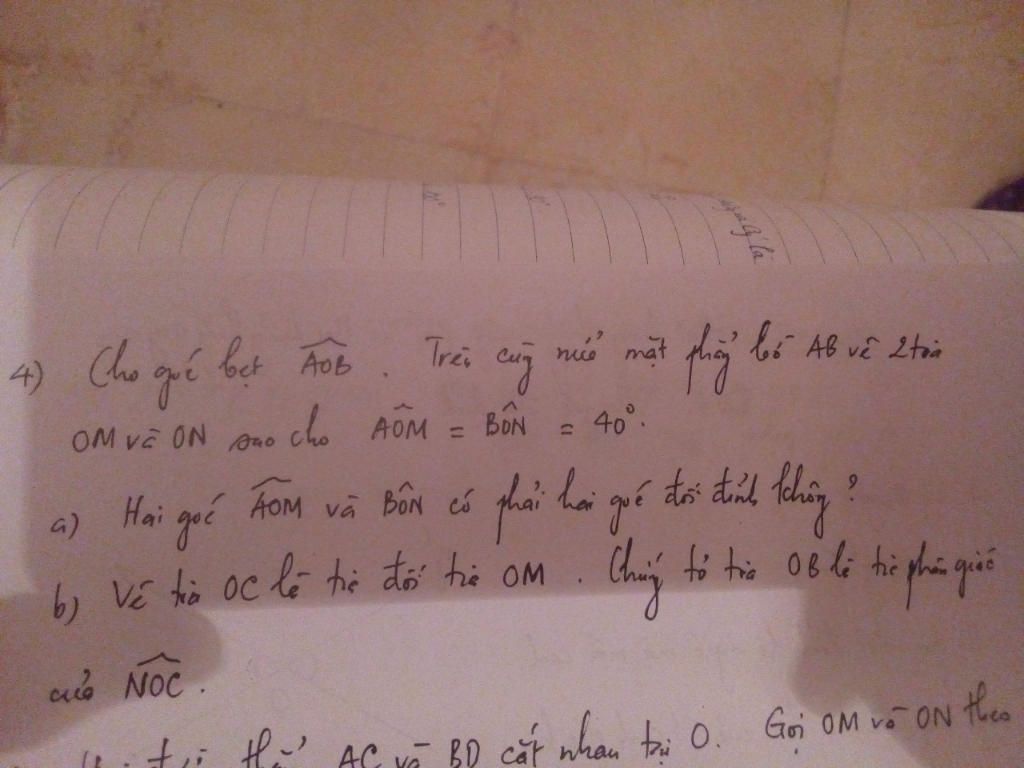 4) Cho góc bẹt AOB. Trên cùng nửa mặt phẳng bờ AB vẽ 2 tia
OM và ON sao cho AOM = BON = 40°.
a) Hai góc AOM và BON có phải hai góc đối đỉnh không?
b) Vẽ tia OC là tia đối tia OM. Chứng tỏ tia OB là tia phân giác
của NOC.
AC và BD cắt nhau tại O. Gọi OM và ON theo